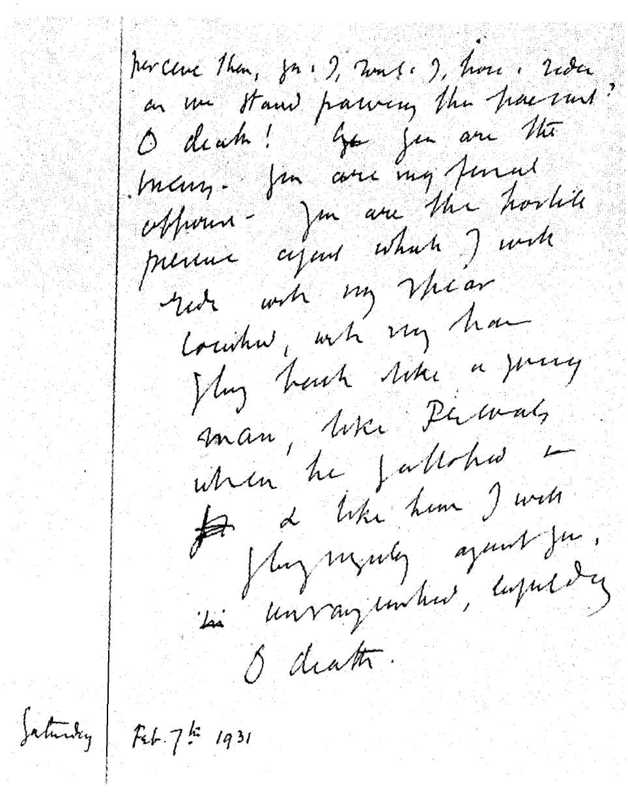 perceive then, you & I, horse & rider
as we stand pawing this pavement?
O death! you are the
enemy. You are my
opponent. You are the hostile
presence against which I will
ride with my spear
couched, with my hair
flung back like a young
man, like Percivals
when he galloped in
& like him I will
fling myself against you,
unvanquished, unyielding
O death.
Saturday Feb. 7th 1931